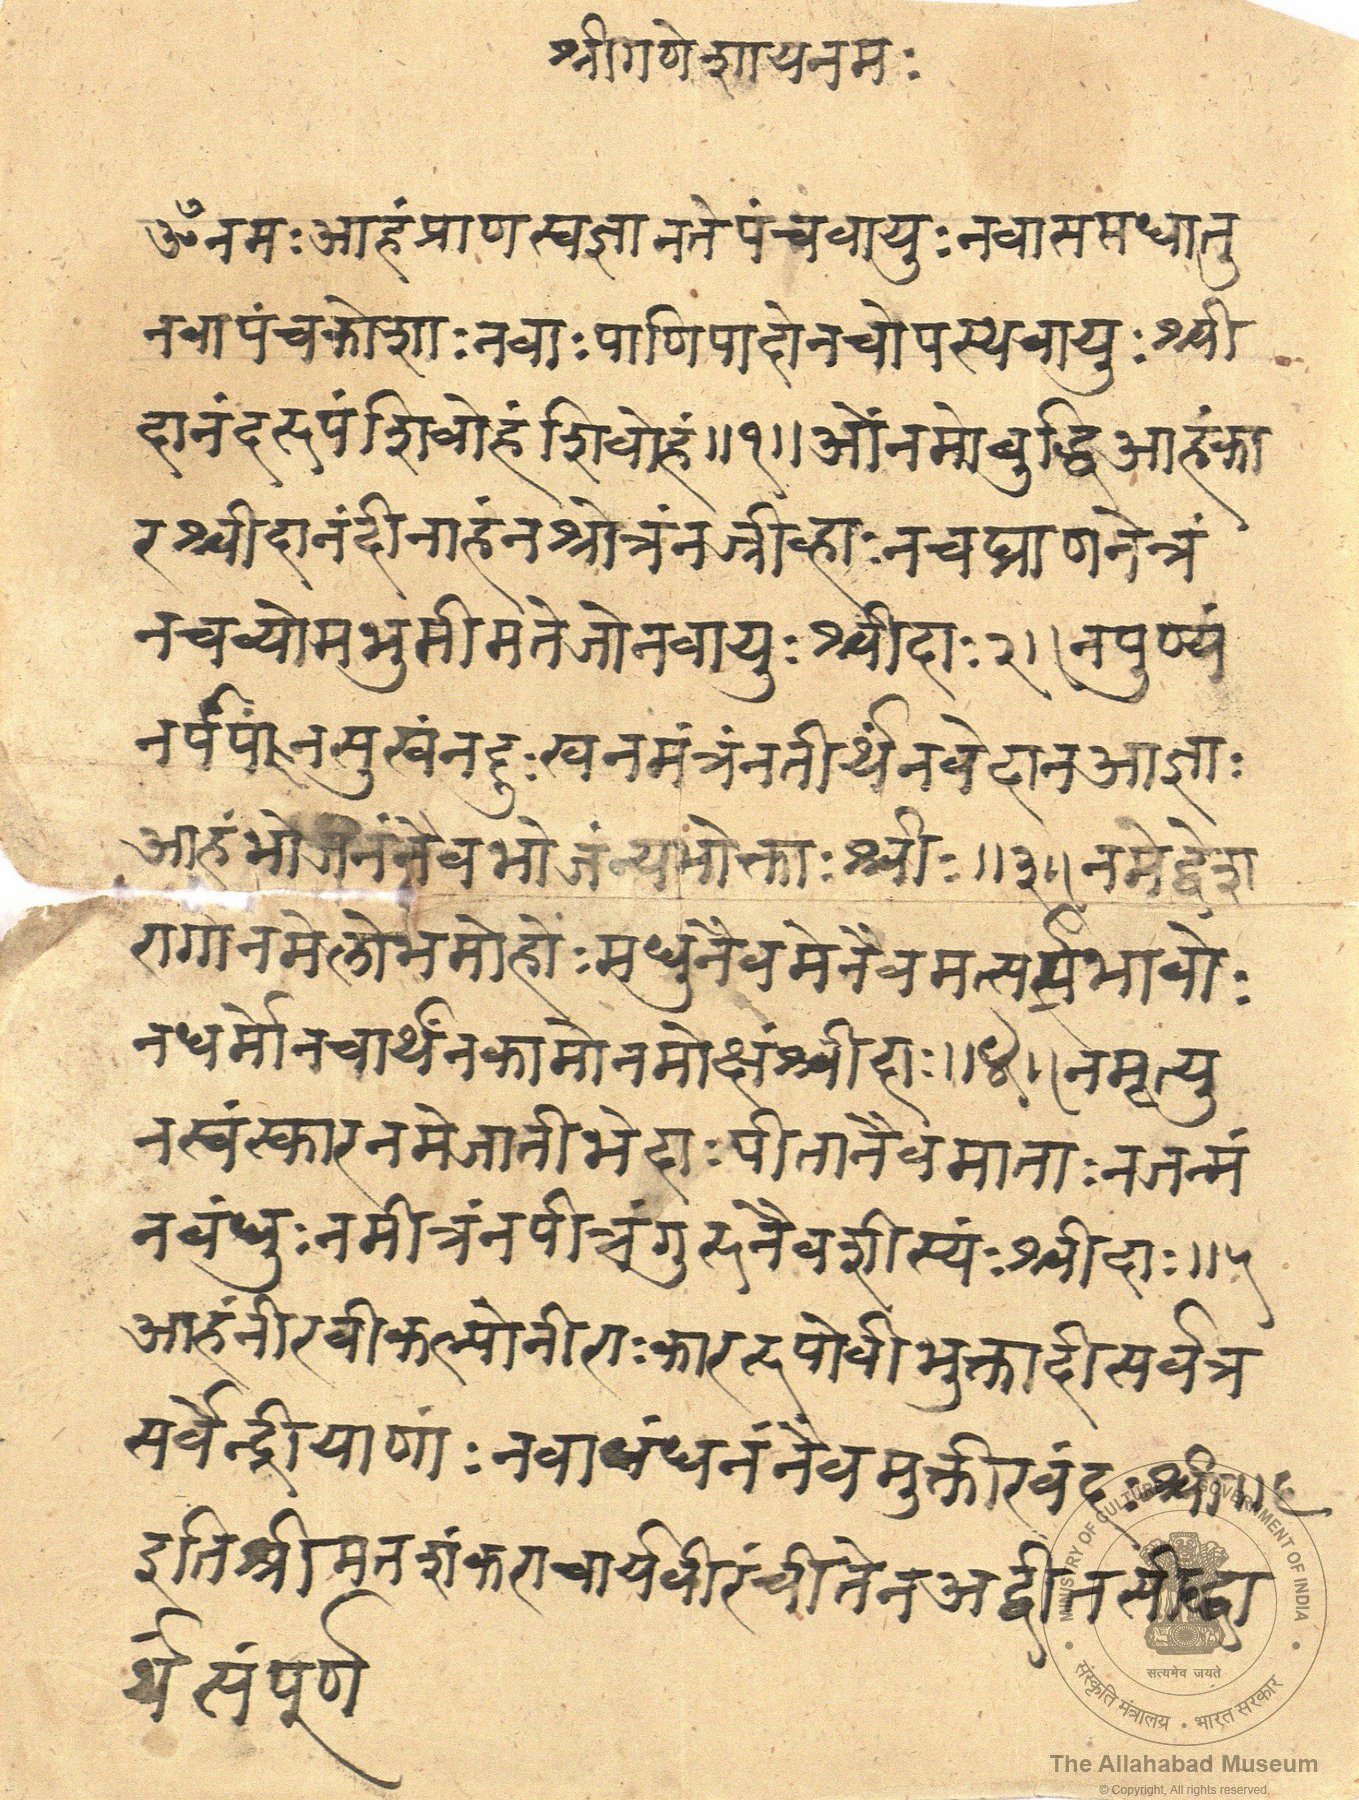 श्रीगणेशायनमः
ॐनमःआहंप्राणस्वज्ञानतेपंचवायुःनवासप्तधातु
नवापंचकोशाःनवाःपाणिपादोनचोपस्थवायुःश्वी
दानंदरूपंशिवोहंशिवोहं॥१॥ओंनमोबुद्धिआहंका
रश्वीदानंदीनाहंनश्रोत्रंनजीव्हाःनचघ्राणनेत्रं
नचव्योमभुमीमतेजोनवायुःश्वीदाः२॥नपुण्यं
नसुखंनदुःखनमंत्रंनतीर्थंनवेदानआज्ञाः
आहंभोजनंनैवभोजंन्यभोक्ताःश्वीः॥३॥नमेद्वेश
रागोनमेलोभमोहोःमधुनैवमेनैवमत्सर्सभावोः
नधर्मोनचार्थंनकामोनमोक्षंश्वीदाः॥४॥नमृत्यु
नस्वंस्कारनमेजातीभेदाःपीतानैवमाताःनजन्मं
नबंधुःनमीत्रंनपीत्रंगुरूनैवशीस्यंःश्वीदाः॥५
आहंनीरवीकल्पोनीराःकाररूपोवीभुक्तादीसर्वत्र
सर्वेन्द्रीयाणांःनवाबंधनंनैवमुक्तीरवंदःश्वी॥६
इतिश्रीमतशंकराचार्यवीरंचीतेनअद्वीतसीद्धा
र्थसंपूर्ण
MINISTRY OF CULTURE GOVERNMENT OF INDIA
सत्यमेव जयते
संस्कृति मंत्रालय • भारत सरकार
The Allahabad Museum
© Copyright, All rights reserved.